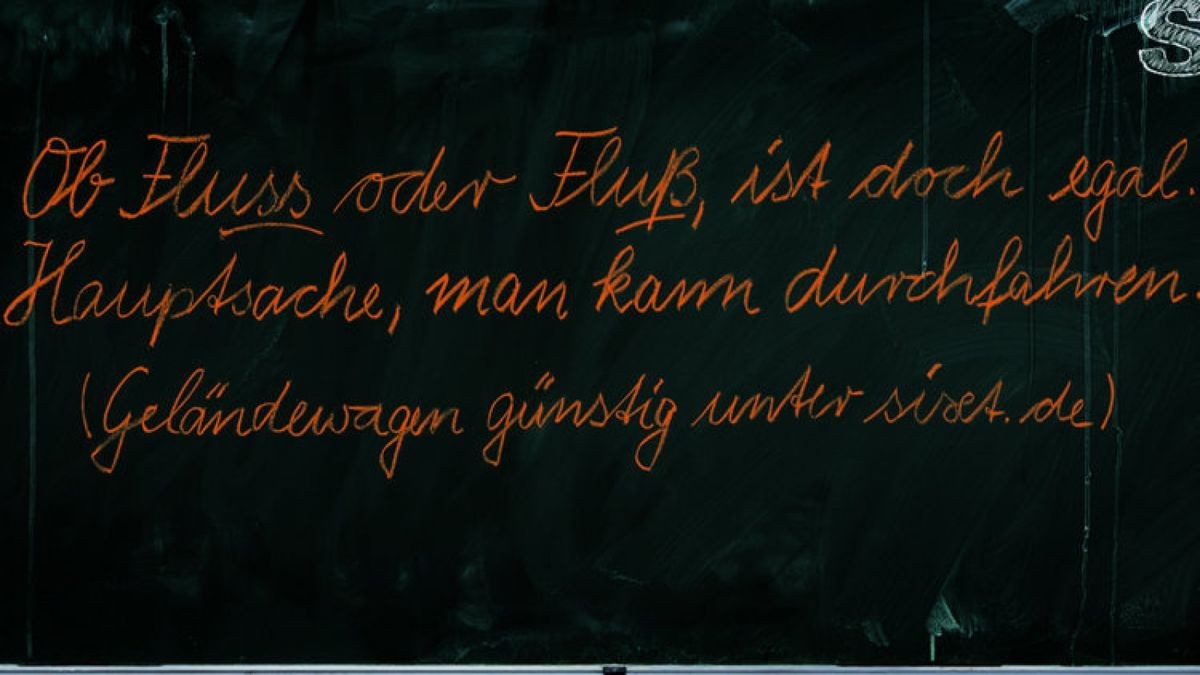 Ob Fluss oder Fluß, ist doch egal.
Hauptsache, man kann durchfahren.
(Geländewagen günstig unter sixt.de)
S